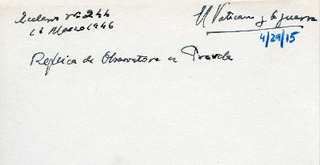 Ecclesia nº 244
16 Marzo 1946
El Vaticano y la guerra
4/29/15
Replica de Observatore a Pravda